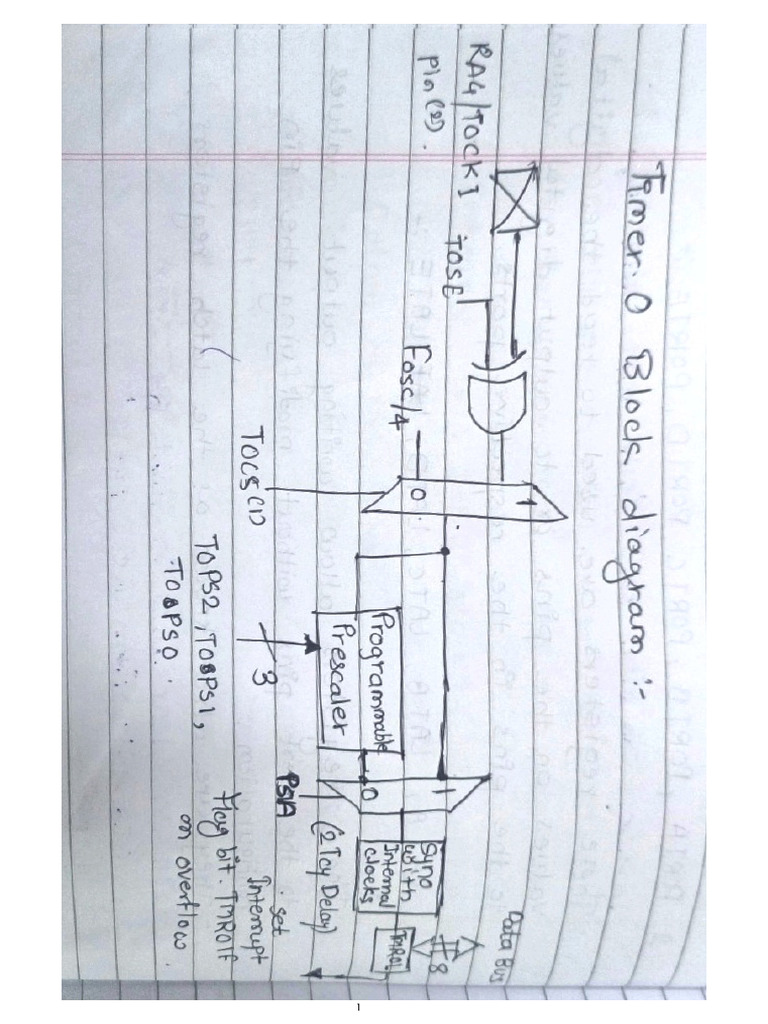 Timer 0 Block diagram :-
RA4/TOCKI
pin (2).
TOSE
Fosc/4
1
0
TOCS (1)
Programmable
Prescaler
3
TOPS2, TOPS1,
TOPS0
1
0
PSA
Sync
with
Internal
clocks
(2 Tcy Delay)
TMR0L
8
Data Bus
set
Interrupt
flag bit. TMR0IF
on overflow.
1